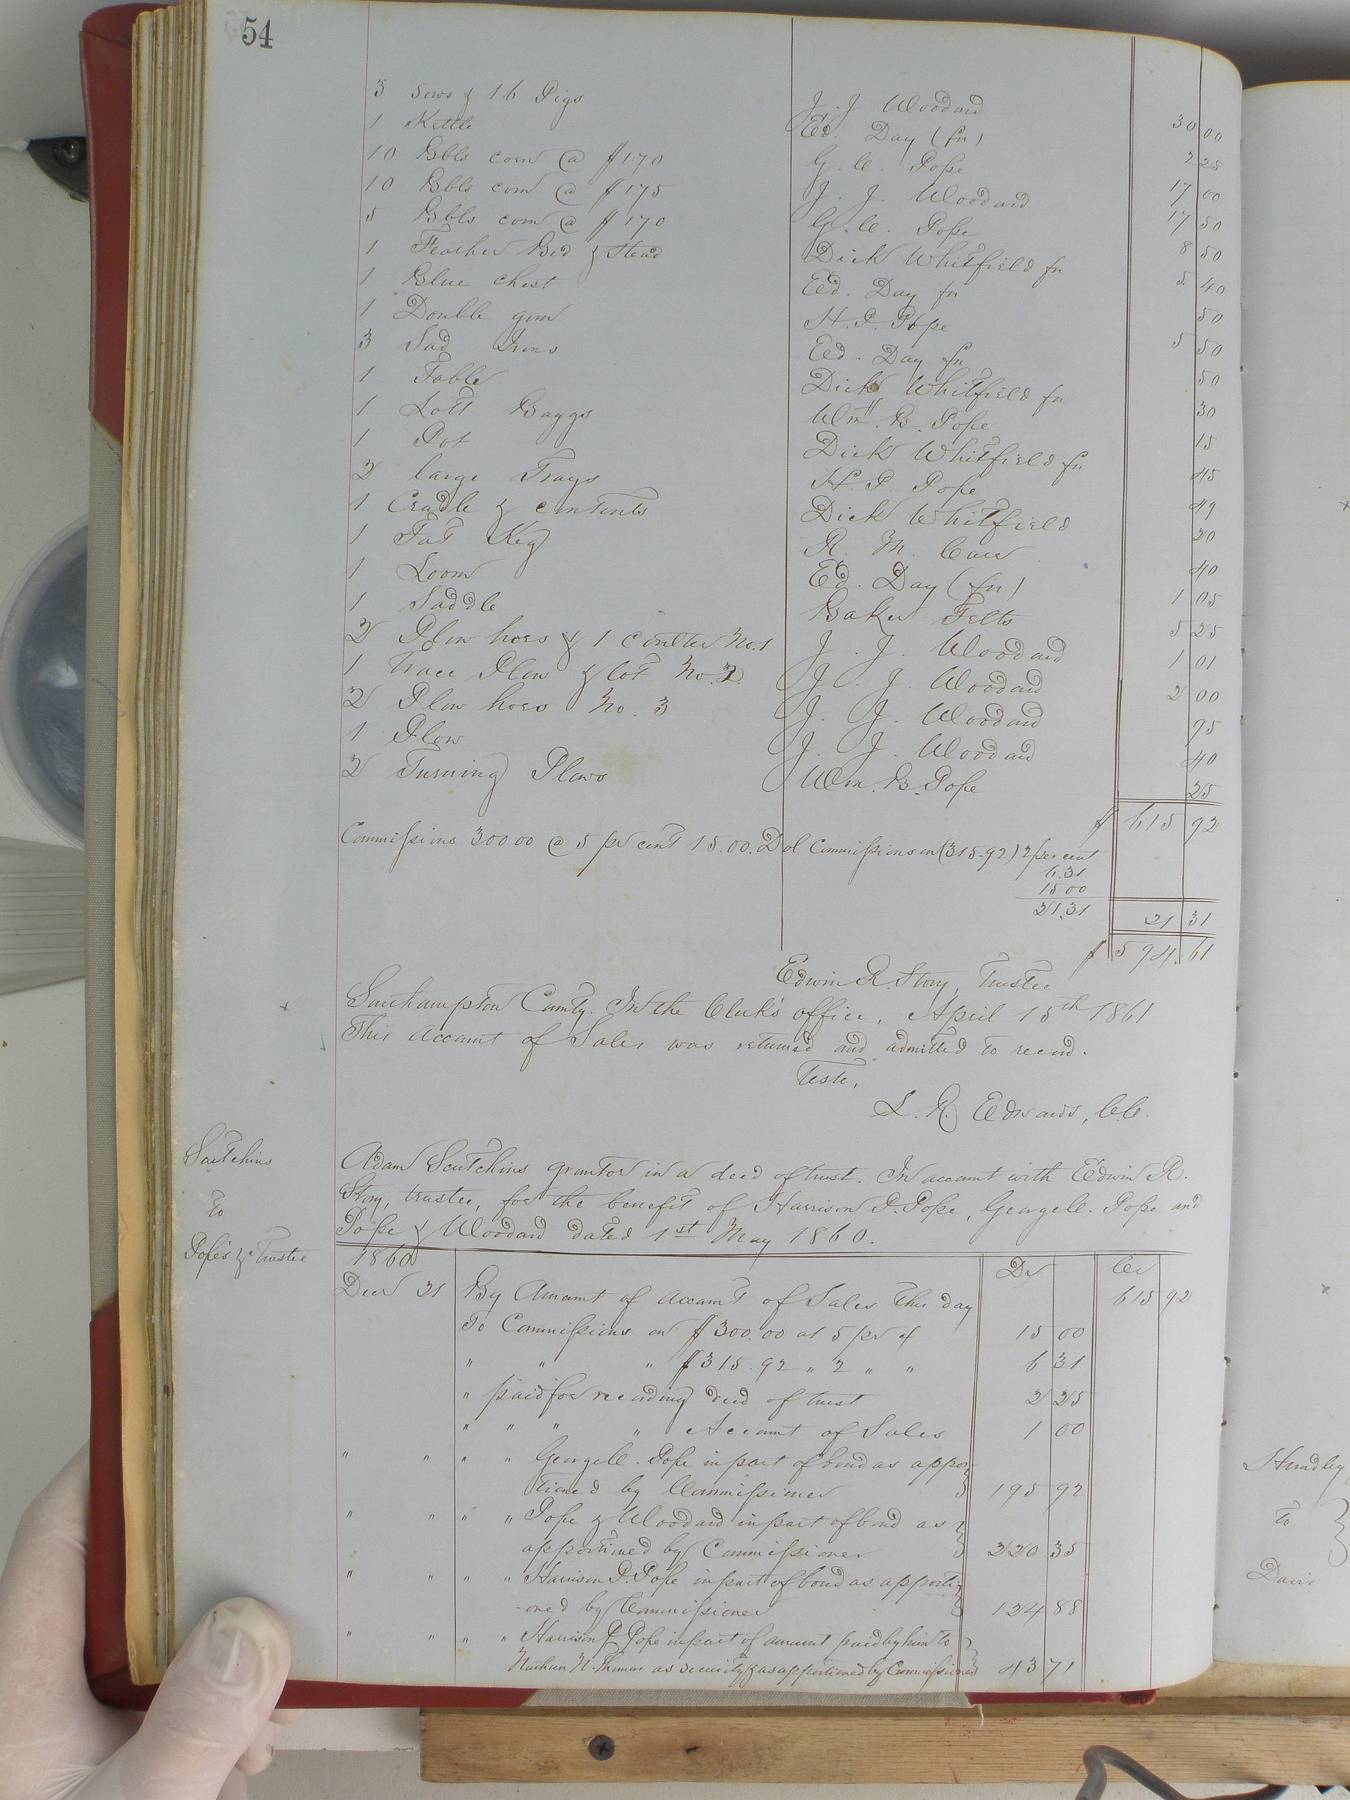 54
3 Sows & 16 Pigs J. J. Woodard 30 00
1 Kettle Ed. Day (fn) 2 25
10 Bbls corn @ $1.70 G. C. Pope 17 00
10 Bbls corn @ $1.75 J. J. Woodard 17 50
5 Bbls corn @ $1.70 G. C. Pope 8 50
1 Feather Bed & Stead Dick Whitfield fn 5 40
1 Blue Chest Ed. Day fn 50
1 Double gun H. P. Pope 5 50
3 Sad Irons Ed. Day fn 50
1 Table Dick Whitfield fn 30
1 Lott Baggs Wm. B. Pope 15
1 Pot Dick Whitfield fn 45
2 large Trays H P Pope 49
1 Cradle & contents Dick Whitfield 20
1 Fat Keg R. M. 40
1 Loom Ed. Day (fn) 1 05
1 Saddle Baker Felts 5 25
2 Plow hoes & 1 coulter No. 1 J. J. Woodard 1 01
1 Trace Plow & lot No. 2 J. J. Woodard 2 00
2 Plow hoes No. 3 J. J. Woodard 95
1 Plow J. J. Woodard 40
2 Turning Plows Wm. B. Pope 25
$ 615 92
Commissions 300 00 @ 5 pr cent 15.00. Dol Commissions on (315.92) 2 per cent
6.31
15 00
21.31 21 31
$ 594. 61
Edwin R. Story, Trustee
Southampton County. In the Clerk's office, April 15th 1861
This account of Sales was returned and admitted to record.
Teste,
L. R. Edwards, C.C.
Scutchins
To
Pope's &c Trustee
Adam Scutchins grantor in a deed of trust. In account with Edwin R.
Story, trustee, for the benefit of Harrison P. Pope, George C. Pope and
Pope & Woodard dated 1st May 1860.
1860 Dr Cr
Decr 31 By Amount of account of Sales this day 615 92
To Commissions on $300.00 at 5 pr ct 15 00
" " " $315.92 " 2 " " 6 31
" paid for recording deed of trust 2 25
" " " " Account of Sales 1 00
" " " " George C. Pope in part of bond as appor-
tioned by Commissioner 195 92
" " " " Pope & Woodard in part of bond as
apportioned by Commissioner 220 35
" " " " Harrison P. Pope in part of bond as apporti-
-oned by Commissioner 124 88
" " " " Harrison P. Pope in part of amount paid by him to
Nathan N. Thomas as security & as apportioned by Commissioner 43 71
Hundley
To
Davis